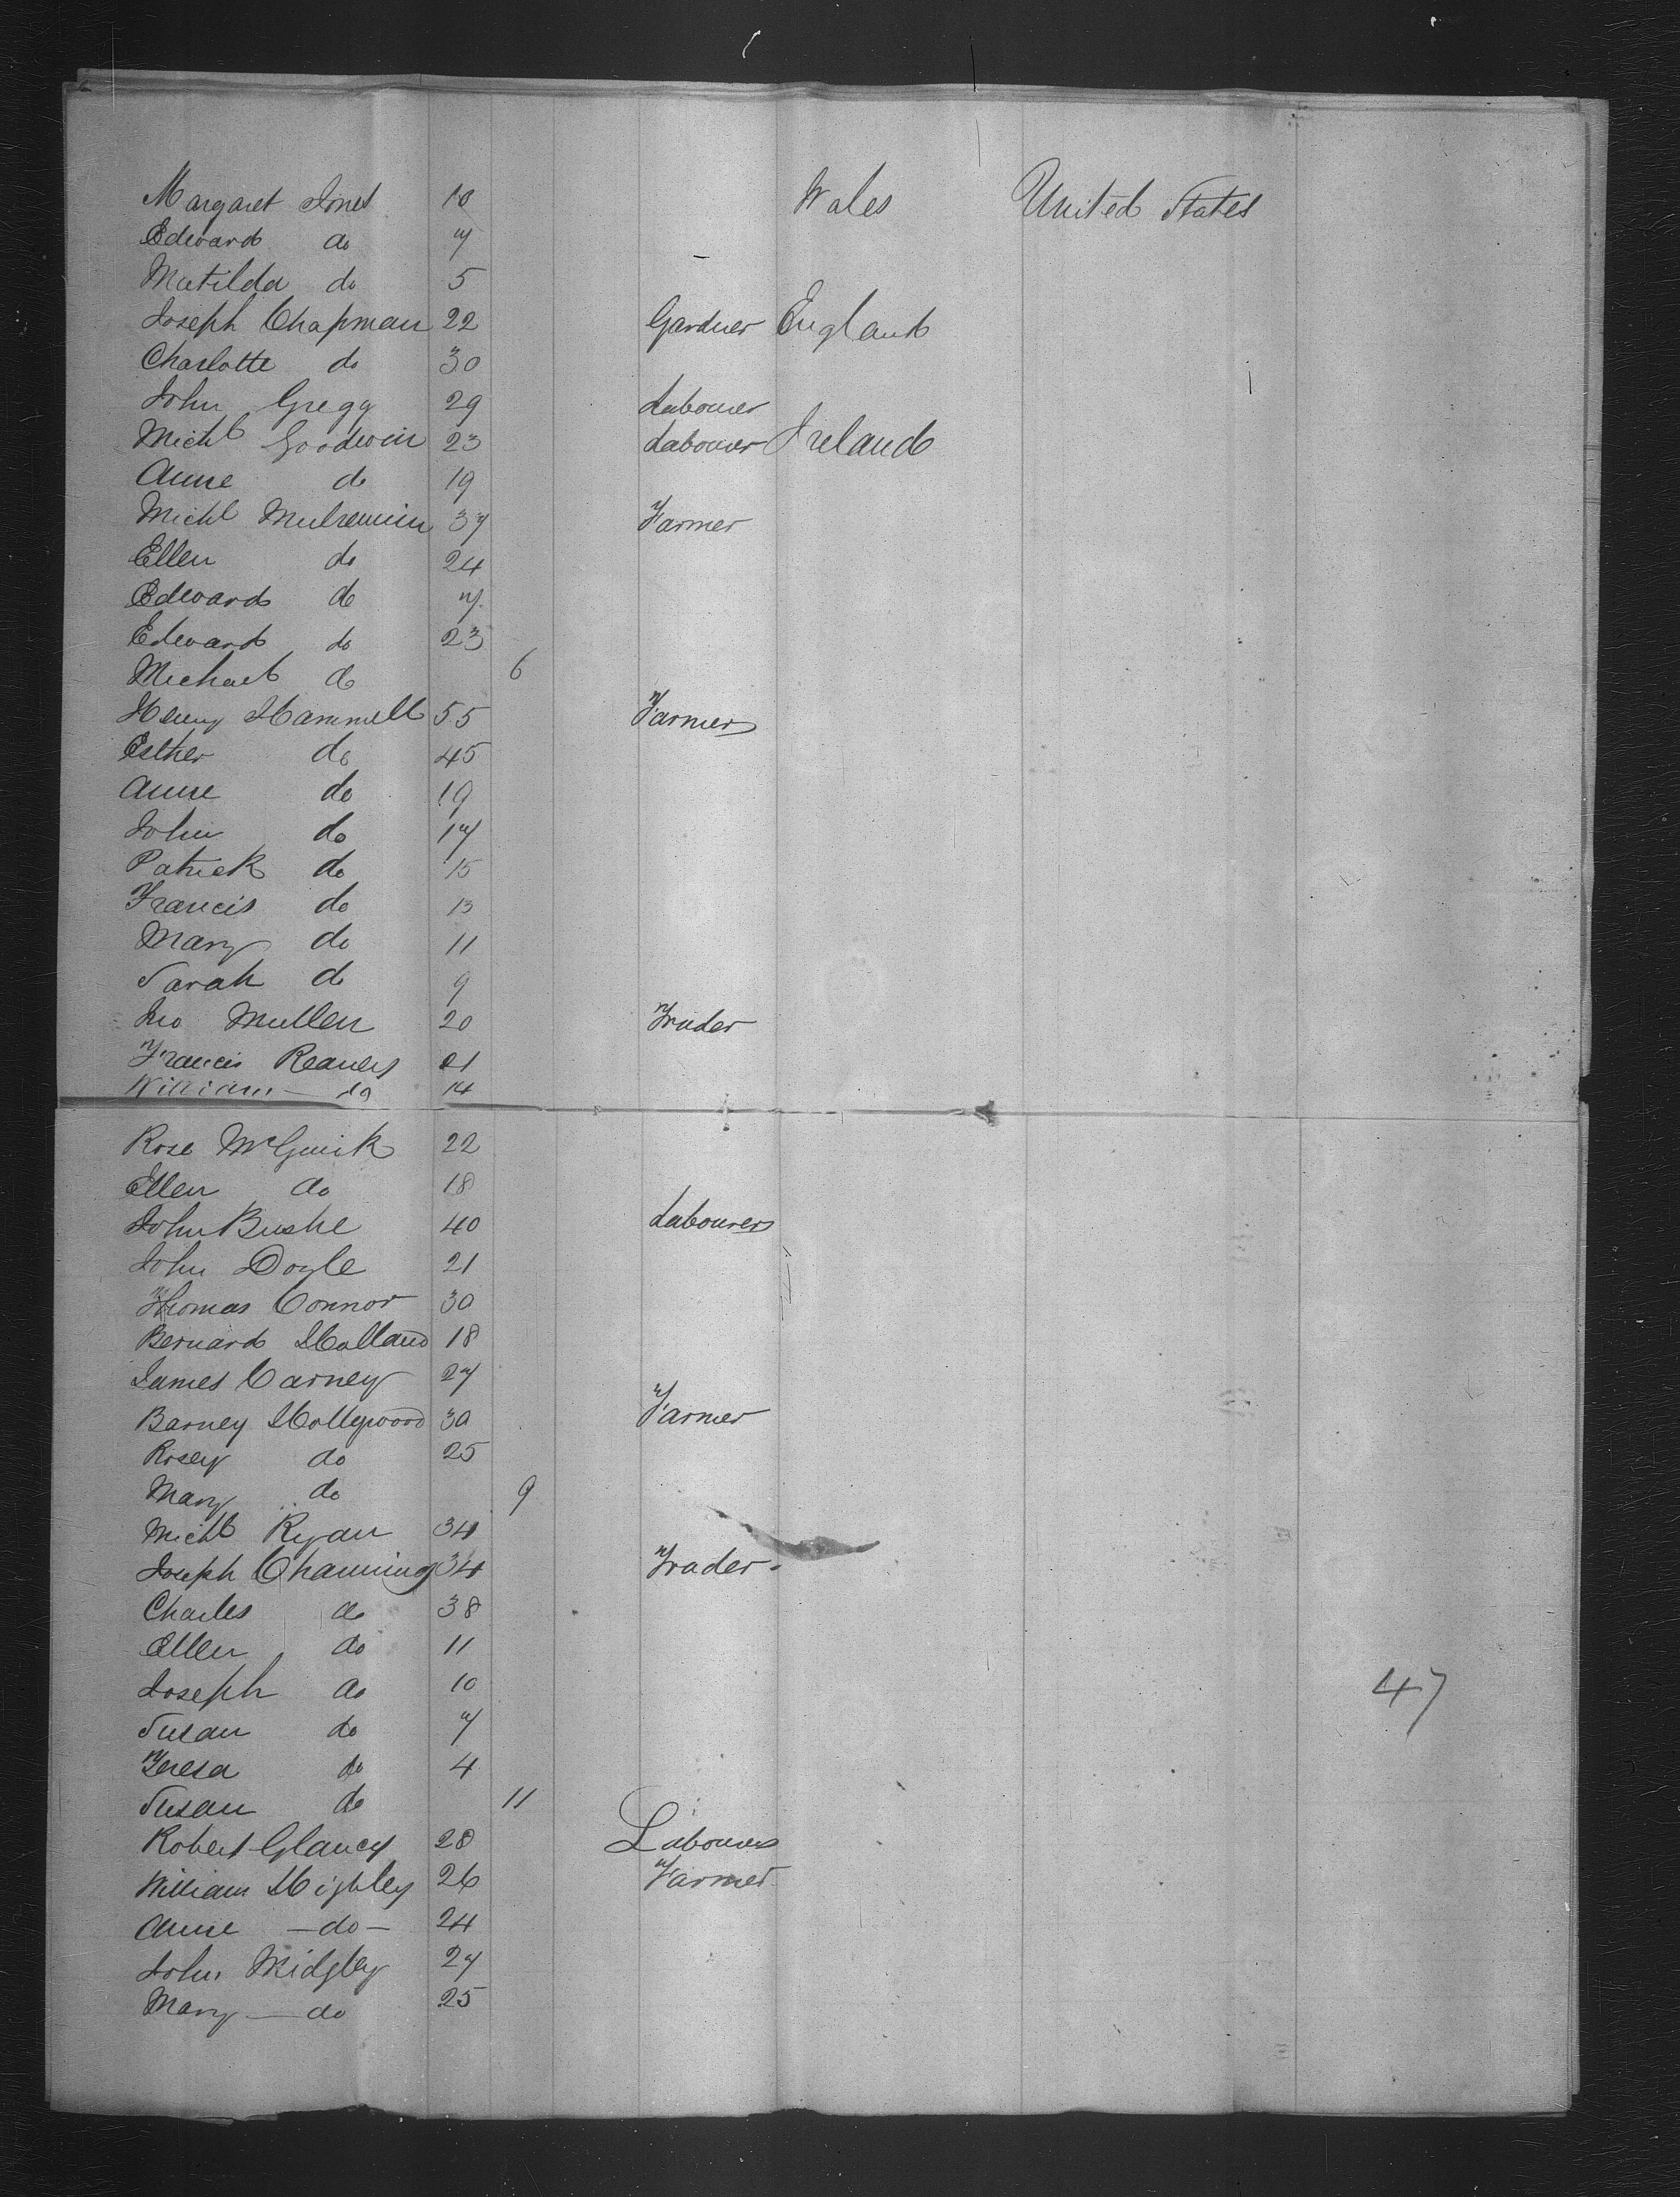 Margaret Jones 10 Wales United States
Edward do 7
Matilda do 5
Joseph Chapman 22 Gardner England
Charlotte do 30
John Gregg 29 Labourer
Michl Goodwin 23 Labourer Ireland
Anne do 19
Michl 37 Farmer
Ellen do 24
Edward do 7
Edward do 23
Michael do 6
Henry Hammell 55 Farmer
Esther do 45
Anne do 19
John do 17
Patrick do 15
Francis do 13
Mary do 11
Sarah do 9
Jno Mullen 20 Trader
Francis 21
William do 14
Rose McGuirk 22
Ellen do 18
John Bushe 40 Labourer
John Doyle 21
Thomas Connor 30
Bernard Holland 18
James Carney 27
Barney Hollywood 30 Farmer
Rosey do 25
Mary do 9
Michl Ryan 34
Joseph Channing 34 Trader
Charles do 38
Ellen do 11
Joseph do 10
Susan do 7
Teresa do 4
Susan do 11
Robert Glancy 28 Labourer
William Highley 26 Farmer
Anne - do - 24
John Midgley 27
Mary - do 25
47